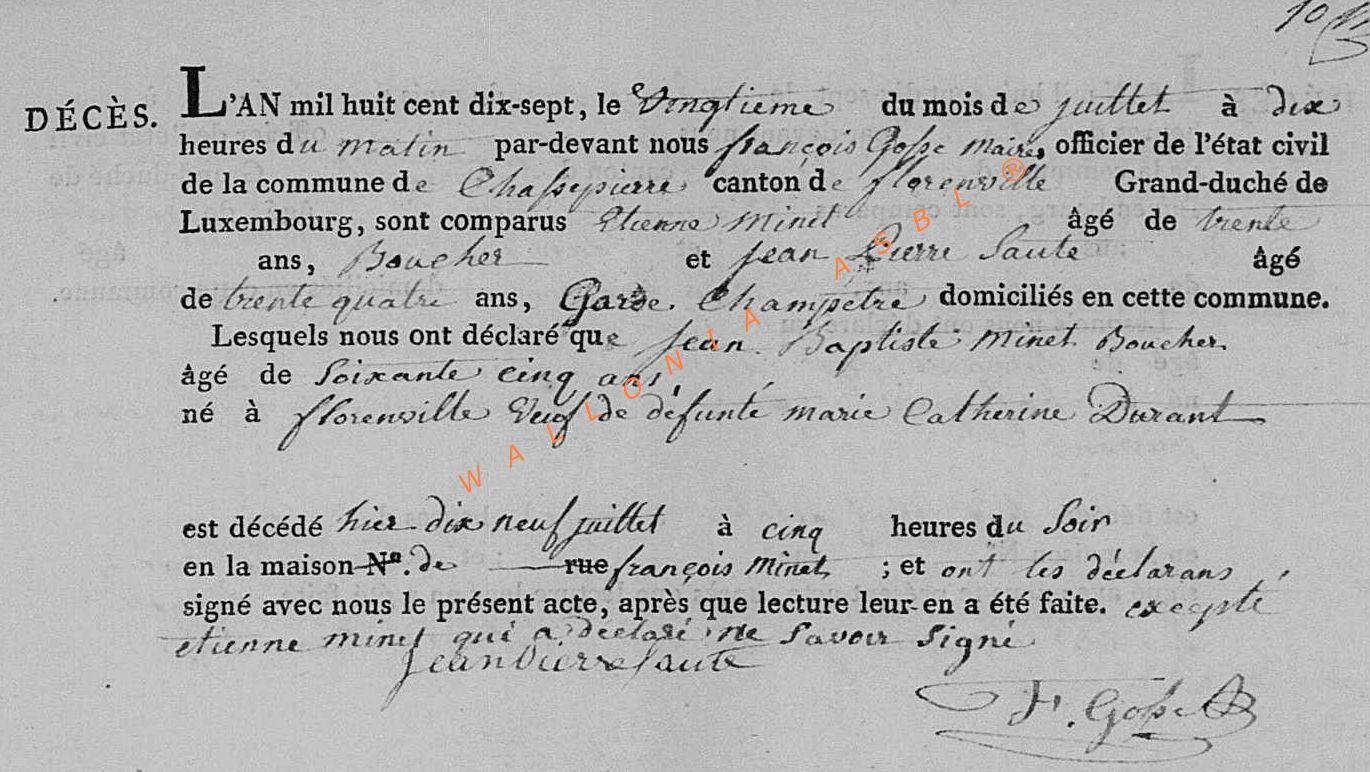 10
DÉCÈS.
L'AN mil huit cent dix-sept, le vingtieme du mois de juillet à dix
heures du matin par-devant nous françois Gosse maire, officier de l'état civil
de la commune de Chassepierre, canton de florenville Grand-duché de
Luxembourg, sont comparus Etienne minet âgé de trente
ans, Boucher et jean Pierre Saute âgé
de trente quatre ans, Garde Champétre domiciliés en cette commune.
Lesquels nous ont déclaré que jean Baptiste minet Boucher
âgé de Soixante cinq ans,
né à florenville Veuf de défunte marie Catherine Durant
est décédé hier dix neuf juillet à cinq heures du Soir
en la maison Nº. de rue françois minet, ; et ont les déclarans
signé avec nous le présent acte, après que lecture leur en a été faite. excepté
etienne minet qui a déclaré ne Savoir Signé
jean Pierre Saute
F. Gosse
WALLONIA ASBL ®